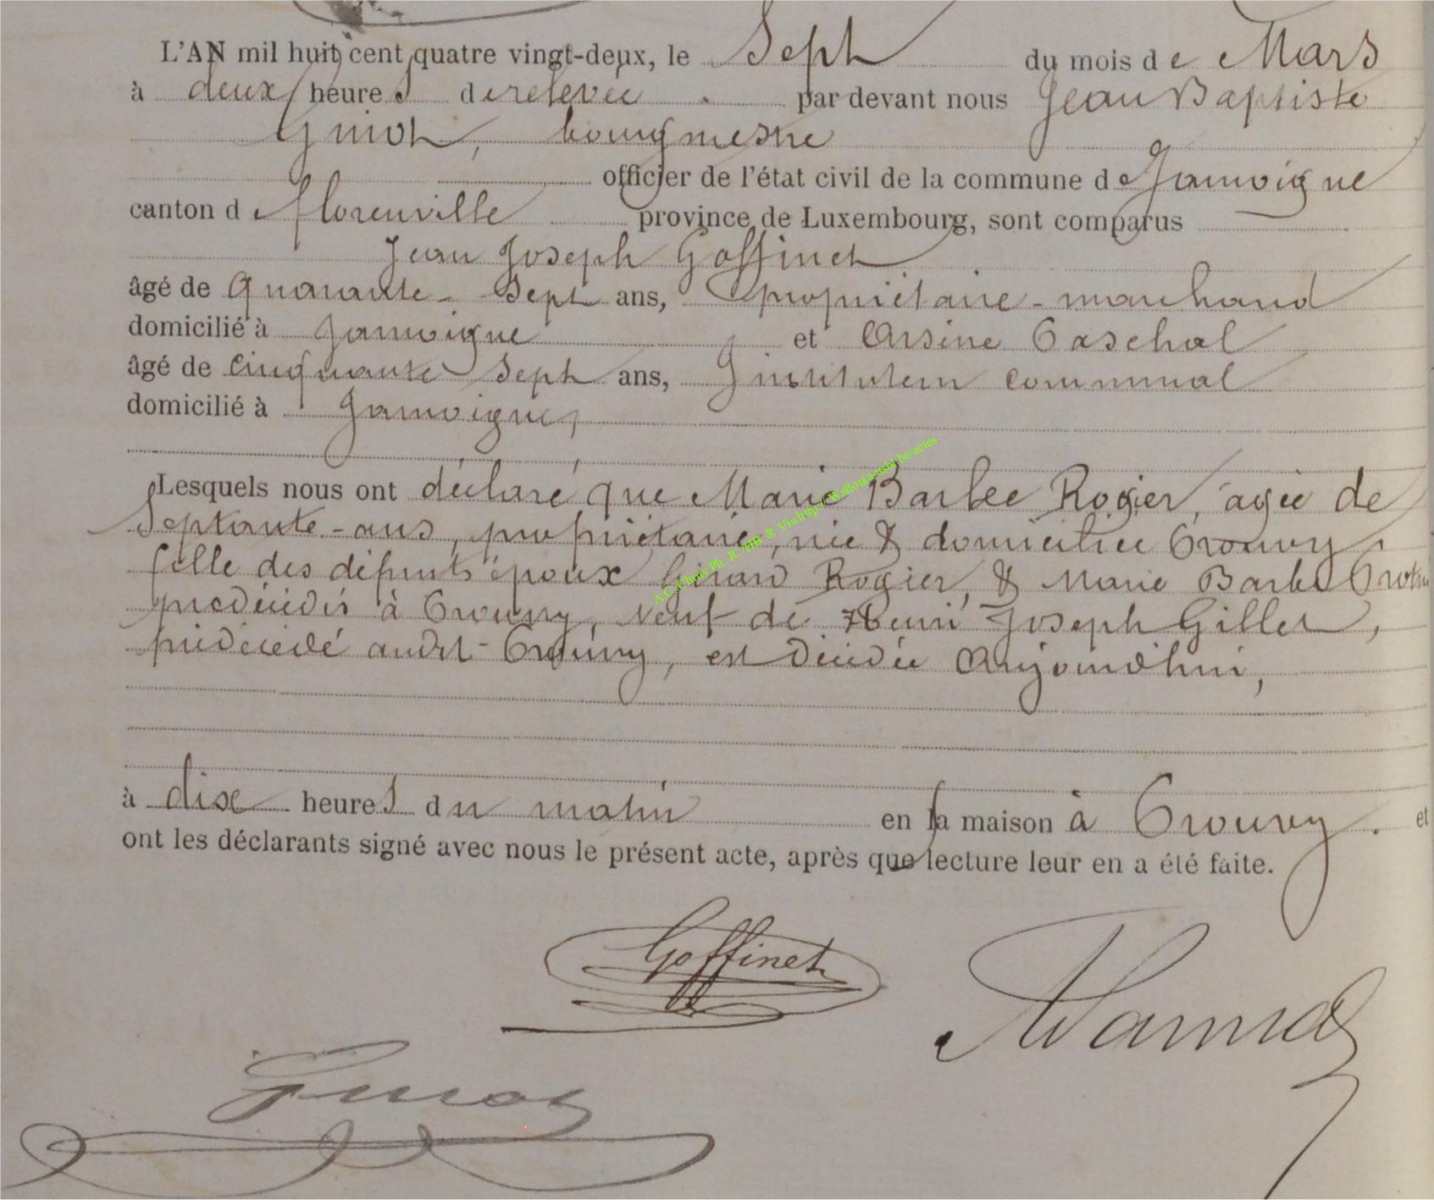 L'AN mil huit cent quatre vingt-deux, le Sept du mois de Mars
à deux heures de relevée par devant nous Jean Baptiste
Guiot, bourgmestre
officier de l'état civil de la commune de Jamoigne
canton de florenville province de Luxembourg, sont comparus
Jean Joseph Goffinet
âgé de Quarante-Sept ans, propriétaire-marchand
domicilié à Jamoigne et Arsène
âgé de cinquante Sept ans, instituteur communal
domicilié à Jamoigne,
Lesquels nous ont déclaré que Marie Barbe Rogier, agée de
Septante-ans, propriétaire, née & domiciliée Prouvy
fille des défunts époux Girard Rogier, & Marie Barbe
prédécédés à Prouvy, veuf de Henri Joseph Gillet,
prédécédé audit-Prouvy, est décédée aujourd'hui,
à dix heures du matin en sa maison à Prouvy. et
ont les déclarants signé avec nous le présent acte, après que lecture leur en a été faite.
Goffinet
Guiot